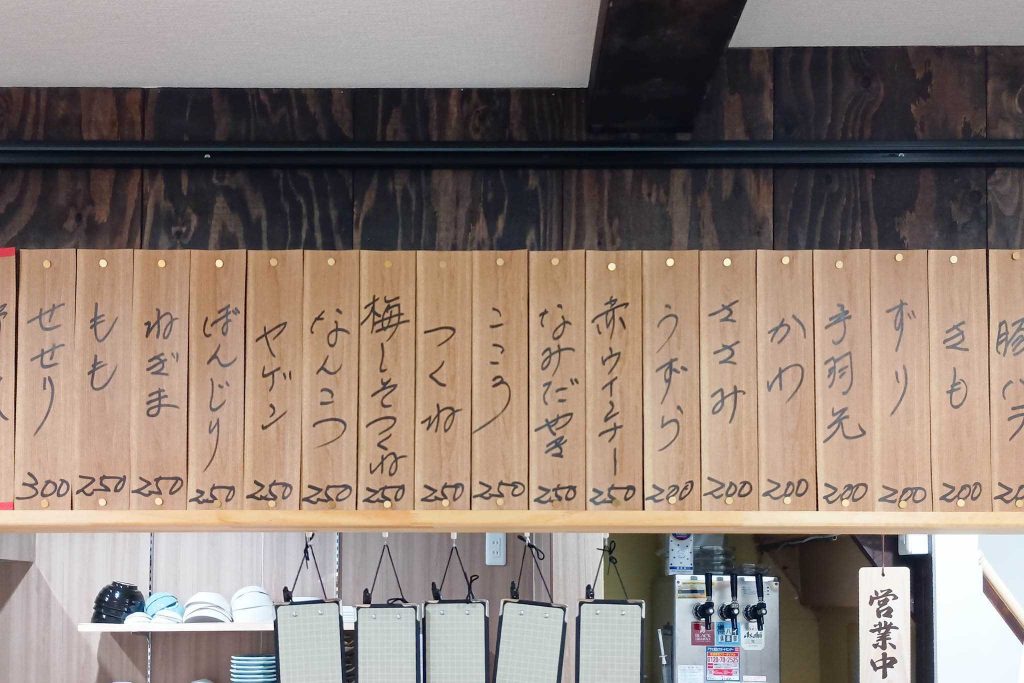 豚バラ
きも
200
ずり
200
手羽先
200
かわ
200
ささみ
200
うずら
200
赤ウインナー
250
なみだやき
250
こころ
250
つくね
250
梅しそつくね
250
なんこつ
250
ヤゲン
250
ぼんじり
250
ねぎま
250
もも
250
せせり
300
営業中
BLACK
Asahi
0120-78-2525